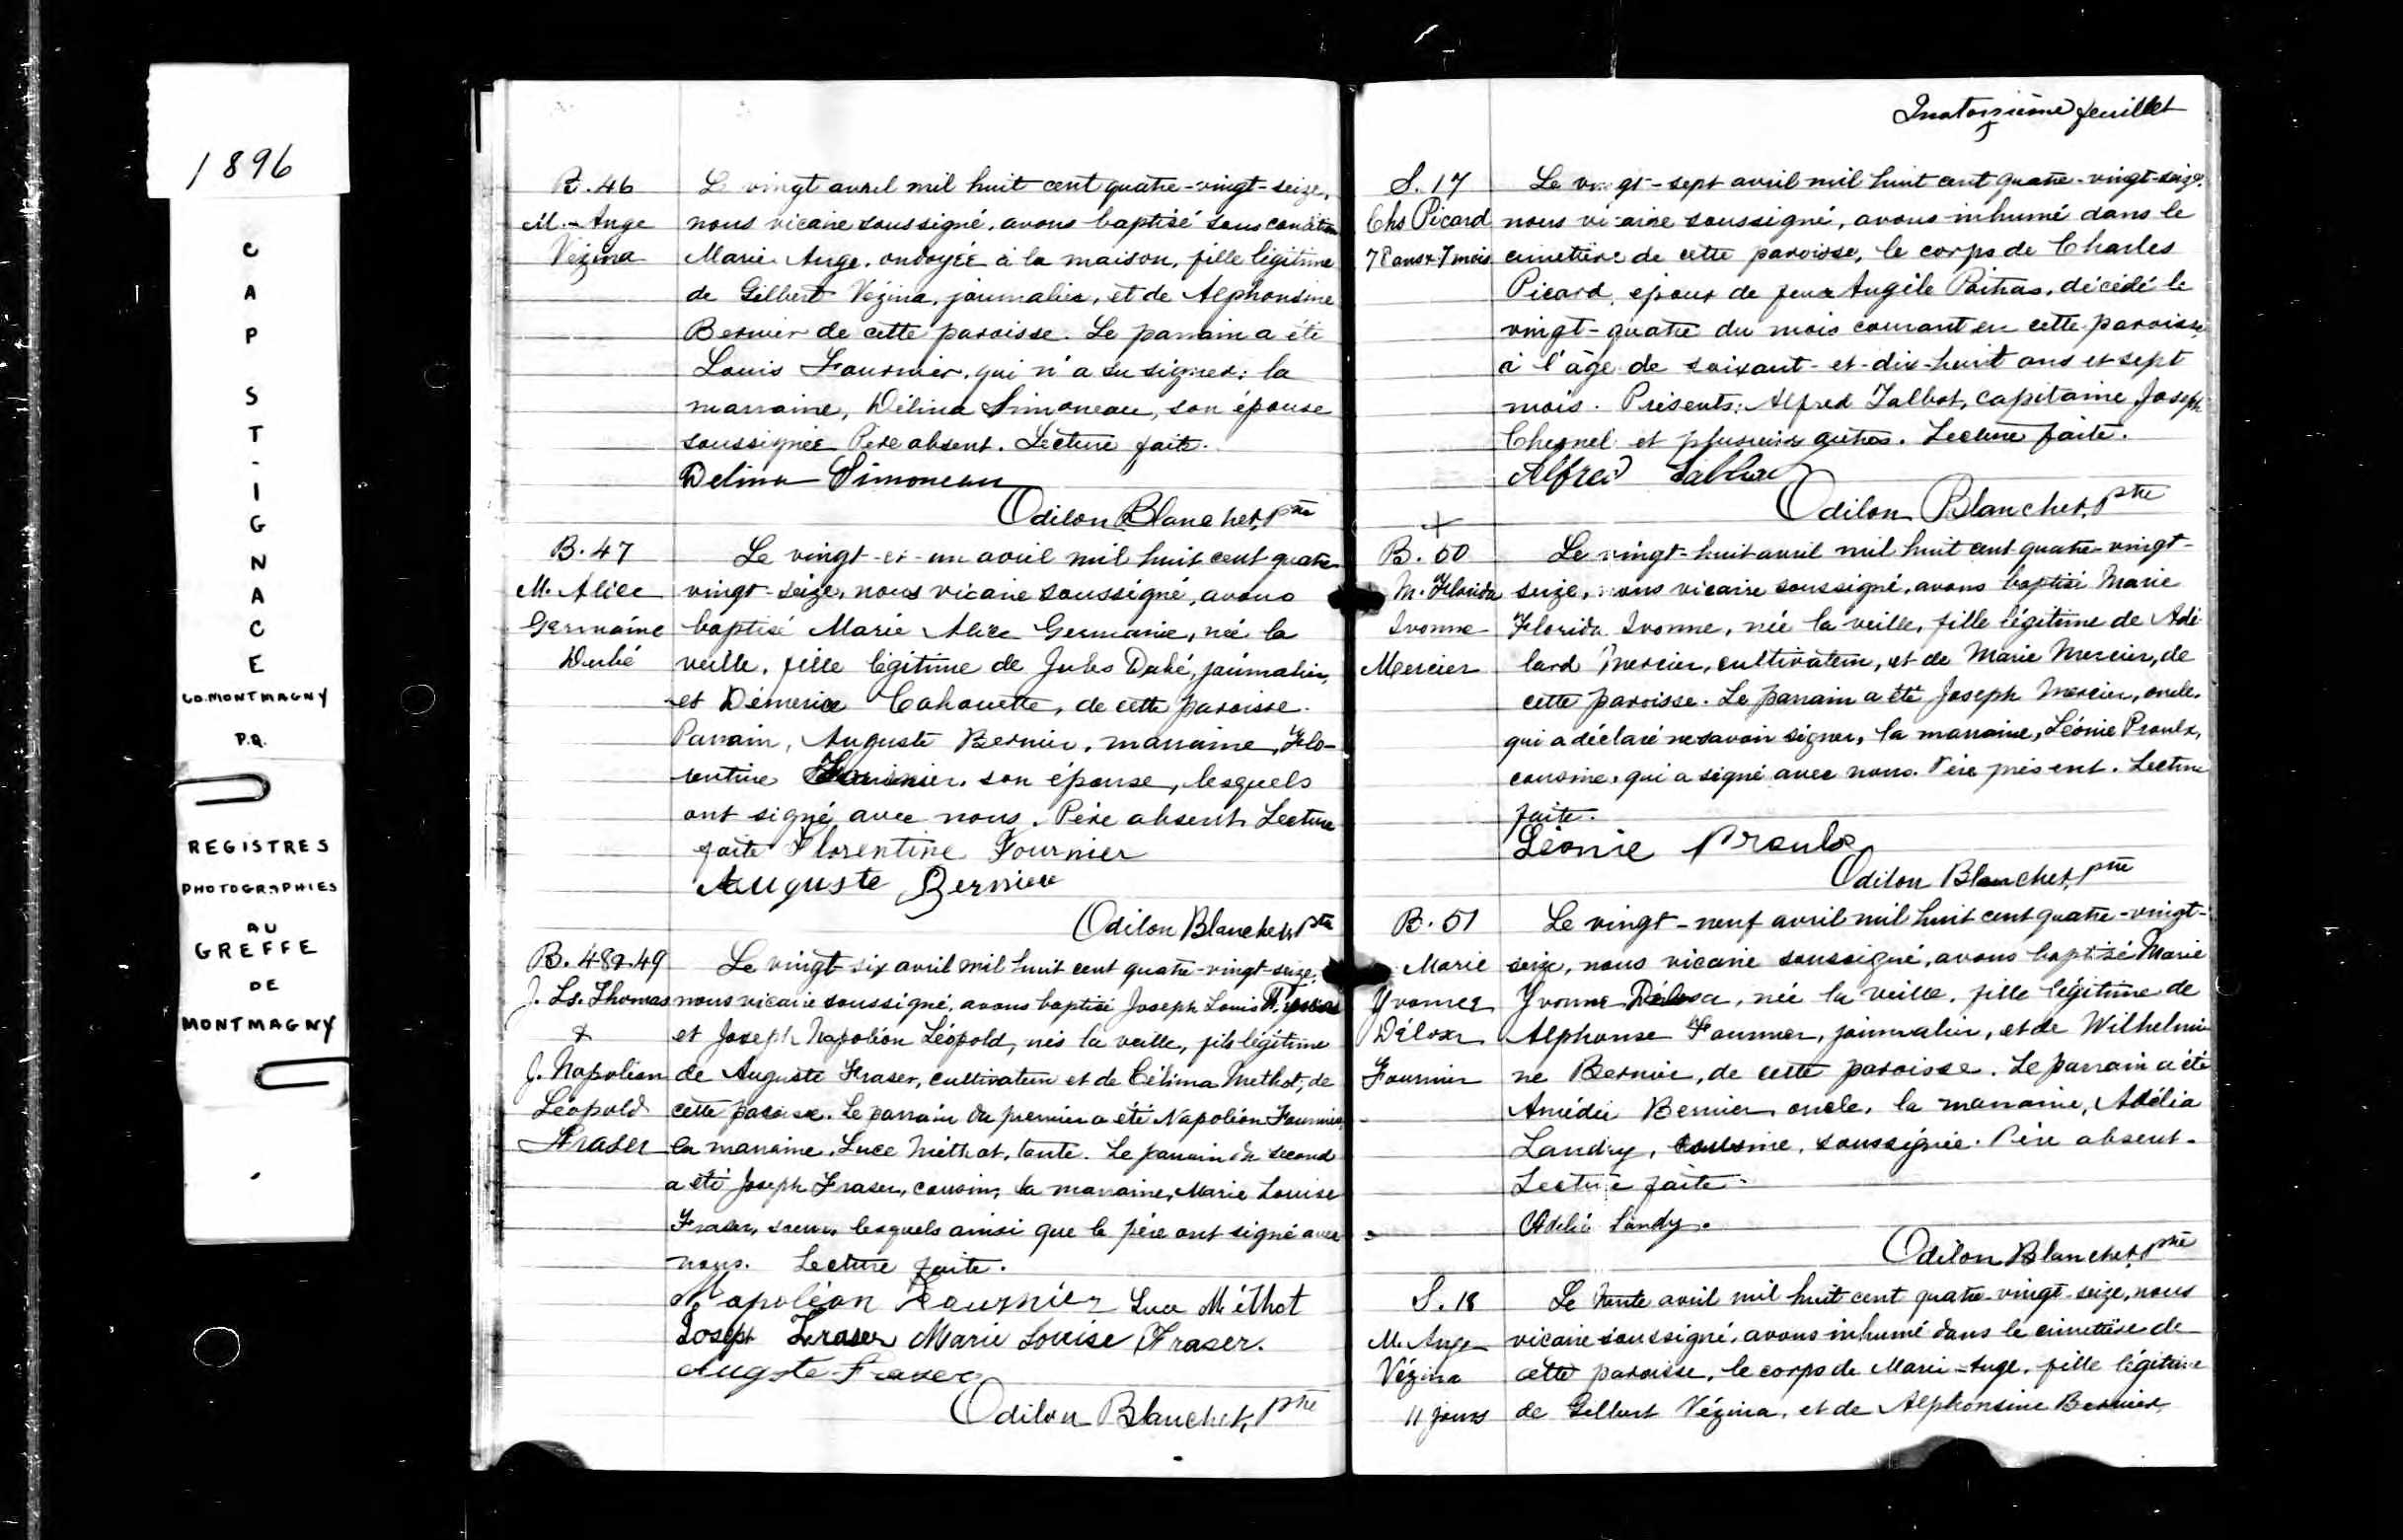 1896
CAP ST-IGNACE
CO. MONTMAGNY
P.Q.
REGISTRES
PHOTOGRAPHIES
AU
GREFFE
DE
MONTMAGNY
B. 46
M.-Ange
Vézina
Le vingt avril mil huit cent quatre-vingt-seize,
nous vicaire soussigné, avons baptisé sous condition
Marie Ange, ondoyée à la maison, fille légitime
de Gilbert Vézina, journalier, et de Alphonsine
Bernier de cette paroisse. Le parrain a été
Louis Fournier, qui n'a su signer; la
marraine, Délina Simoneau, son épouse
soussignée Père absent. Lecture faite.
Delina Simoneau
Odilon Blanchet, ptre
B. 47
M. Alice
Germaine
Dubé
Le vingt-et-un avril mil huit cent quatre
vingt-seize, nous vicaire soussigné, avons
baptisé Marie Alice Germaine, née la
veille, fille légitime de Jules Dubé, journalier,
et Démerise Cahouette, de cette paroisse.
Parrain, Auguste Bernier, marraine, Flo-
rentine Fournier, son épouse, lesquels
ont signé avec nous. Père absent. Lecture
faite Florentine Fournier
Auguste Bernier
Odilon Blanchet, ptre
B. 48 & 49
J. Ls. Thomas
&
J. Napoléon
Léopold
Fraser
Le vingt-six avril mil huit cent quatre-vingt-seize,
nous vicaire soussigné, avons baptisé Joseph Louis
et Joseph Napoléon Léopold, nés la veille, fils légitime
de Auguste Fraser, cultivateur et de Célima Méthot, de
cette paroisse. Le parrain du premier a été Napoléon Fournier,
la marraine, Luce Méthot, tante. Le parrain du second
a été Joseph Fraser, cousin, la marraine, Marie Louise
Fraser, soeur, lesquels ainsi que le père ont signé avec
nous. Lecture faite.
Napoléon Fournier Luce Méthot
Joseph Fraser Marie Louise Fraser.
Auguste Fraser
Odilon Blanchet, ptre
Quatorzième feuillet
S. 17
Chs Picard
78 ans & 7 mois
Le vingt-sept avril mil huit cent quatre-vingt-seize,
nous vicaire soussigné, avons inhumé dans le
cimetière de cette paroisse, le corps de Charles
Picard, époux de feue Angèle Poitras, décédé le
vingt-quatre du mois courant en cette paroisse,
à l'âge de soixant-et-dix-huit ans et sept
mois. Présents: Alfred Talbot, capitaine Joseph
Chesnel et plusieurs autres. Lecture faite.
Alfred Talbot
Odilon Blanchet, ptre
+
B. 50
M. Florida
Ivonne
Mercier
Le vingt-huit avril mil huit cent quatre-vingt-
seize, nous vicaire soussigné, avons baptisé Marie
Florida Ivonne, née la veille, fille légitime de Adé-
lard Mercier, cultivateur, et de Marie Mercier, de
cette paroisse. Le parrain a été Joseph Mercier, oncle,
qui a déclaré ne savoir signer, la marraine, Léonie Proulx,
cousine, qui a signé avec nous. Père présent. Lecture
faite.
Léonie Proulx
Odilon Blanchet, ptre
B. 51
Marie
Yvonne
Déloxa
Fournier
Le vingt-neuf avril mil huit cent quatre-vingt-
seize, nous vicaire soussigné, avons baptisé Marie
Yvonne Déloxa, née la veille, fille légitime de
Alphonse Fournier, journalier, et de Wilhelmi-
ne Bernier, de cette paroisse. Le parrain a été
Amédée Bernier, oncle, la marraine, Adélia
Landry, cousine, soussignée. Père absent.
Lecture faite.
Adélia Landy.
Odilon Blanchet, ptre
S. 18
M. Ange
Vézina
11 jours
Le trente avril mil huit cent quatre-vingt-seize, nous
vicaire soussigné, avons inhumé dans le cimetière de
cette paroisse, le corps de Marie-Ange, fille légitime
de Gilbert Vézina, et de Alphonsine Bernier,